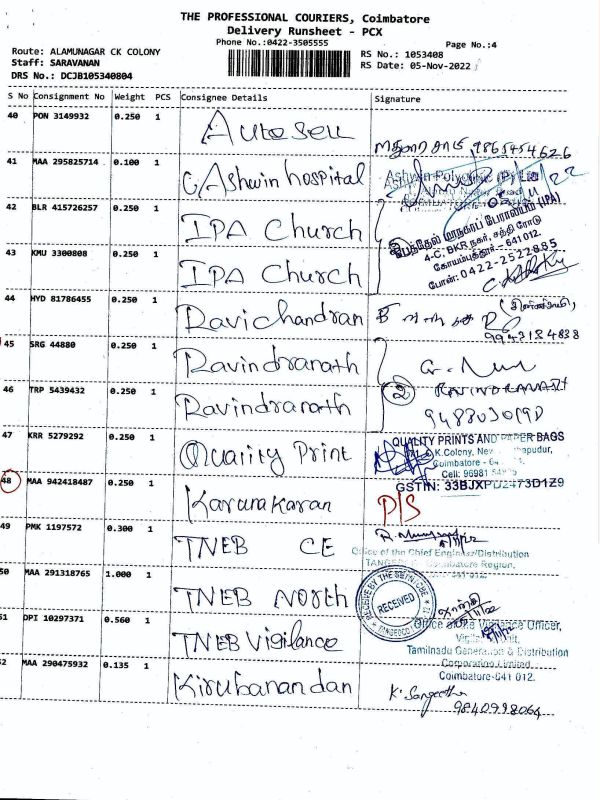 THE PROFESSIONAL COURIERS, Coimbatore
Delivery Runsheet - PCX
Phone No.:0422-3505555
Page No.:4
Route: ALAMUNAGAR CK COLONY
Staff: SARAVANAN
DRS No.: DCJB105340804
RS No.: 1053408
RS Date: 05-Nov-2022
S No Consignment No Weight PCS Consignee Details Signature
40 PON 3149932 0.250 1
41 MAA 295825714 0.100 1 Ashwin hospital
42 BLR 415726257 0.250 1 IPA Church
43 KMU 3300808 0.250 1 IPA Church
4-C, BKR நகர், சத்தி ரோடு
கோயம்புத்தூர் – 641 012.
போன்: 0422-2522885
44 HYD 81786455 0.250 1 Ravichandran
9943184838
45 SRG 44880 0.250 1 Ravindranath
46 TRP 5439432 0.250 1 Ravindranath
2
47 KRR 5279292 0.250 1 Quality Print
QUALITY PRINTS AND PAPER BAGS
K.Colony, New
Coimbatore -
Cell: 96981
GSTIN:
48 MAA 942418487 0.250 1 Karunakaran D/S
49 PMK 1197572 0.300 1 TNEB CE
Office of the Chief Engineer/Distribution
Coimbatore Region,
50 MAA 291318765 1.000 1 TNEB North
RECEIVED
51 DPI 10297371 0.560 1 TNEB Vigilance
Office of the Vigilance Officer,
Tamilnadu Generation & Distribution
Corporation Limited
Coimbatore-641 012.
52 MAA 290475932 0.135 1 Kirubanandan
K. Sangeetha
9840998064